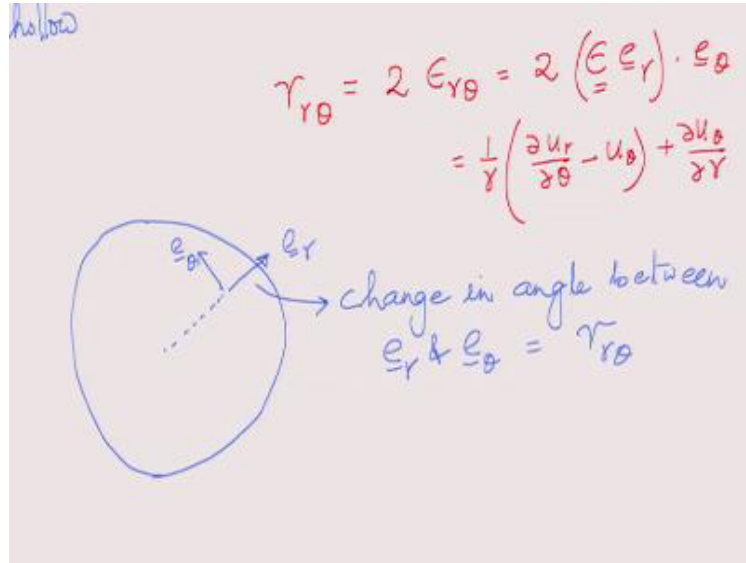 hollow
γ_rθ = 2 ϵ_rθ = 2 (ϵ e_r) · e_θ
= 1/r (∂u_r/∂θ - u_θ) + ∂u_θ/∂r
e_θ e_r
change in angle between
e_r & e_θ = γ_rθ